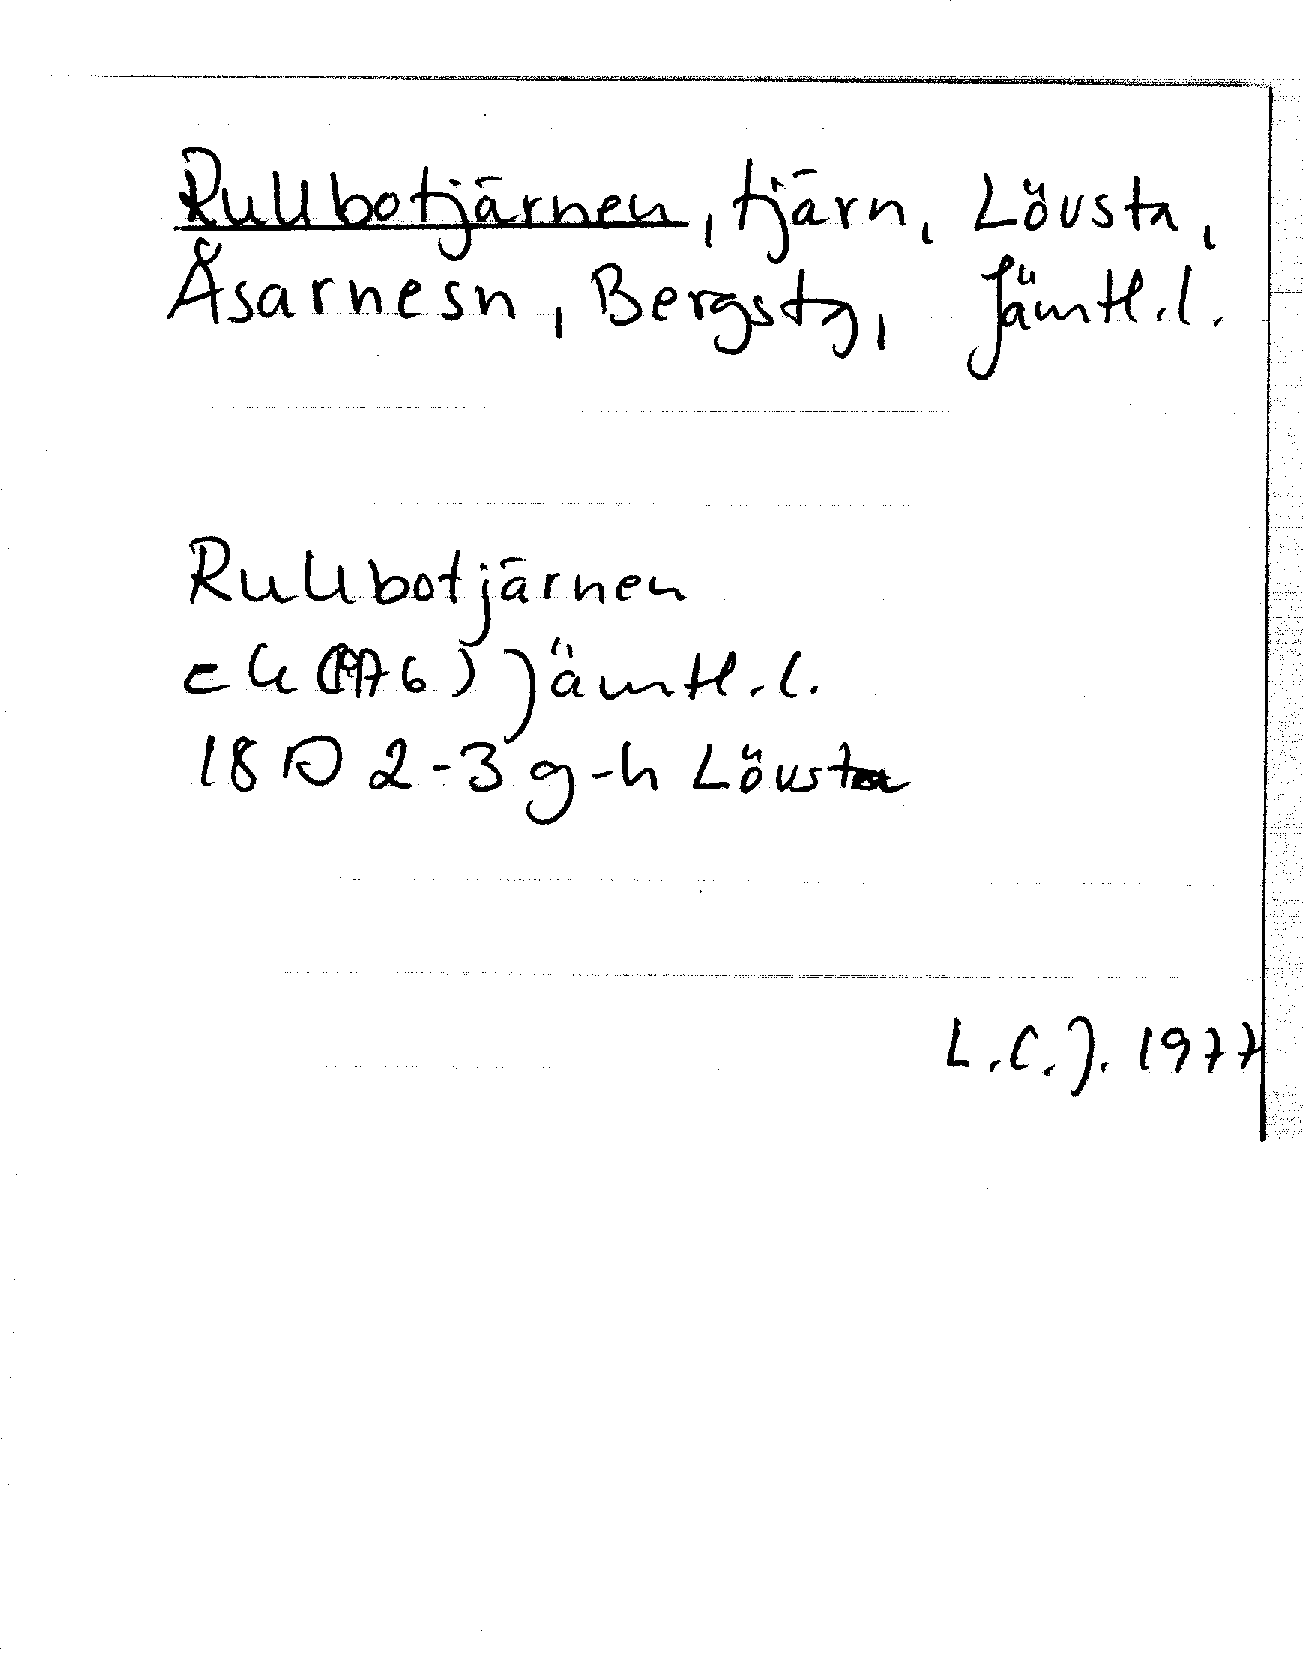 Rullbotjärnen, tjärn, Lövsta,
Åsarnesn, Bergstg, Jämtl.l.
Rullbotjärnen
ek (1976) Jämtl.l.
18 D 2-3 g-h Lövsta
L.C.J. 1977